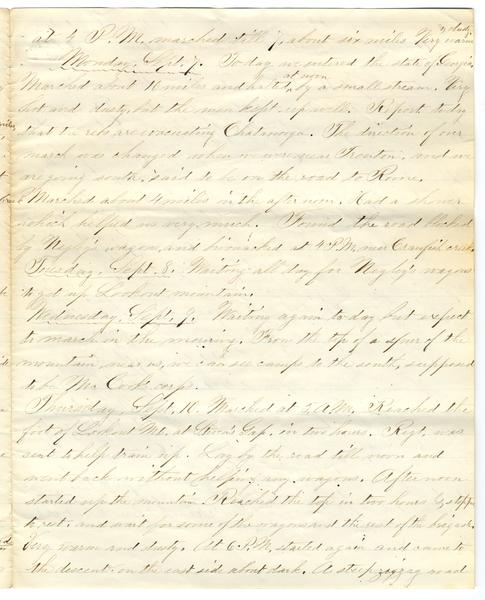 & dusty.
At 4 P.M. marched till 7 about six miles. Very warm
Monday, Sept. 7. To day we entered the state of Georgia
Marched about 10 miles and halted, at noon by a small stream. Very
hot and dusty, but the men kept up well. Report to day
that the rebs are evacuating Chatanooga. The direction of our
march was changed when we were near Trenton, and we
are going south, said to be on the road to Rome.
Marched about 4 miles in the after noon. Had a shower
which helped us very much. Found the road blocked
by Negley's wagons, and bivouacked at 4 P.M. near Crawfish creek.
Tuesday, Sept. 8. Waiting all day for Negley's wagons
to get up Lookout mountain.
Wednesday, Sept. 9. Waiting again to day but expect
to march in the morning. From the top of a spur of the
mountain near us, we can see camps to the south, supposed
to be Mc Cook's corps.
Thursday, Sept. 10. Marched at 5 A.M. Reached the
foot of Lookout Mt. at Gap, in two hours. Regt. was
sent to help train up. Lay by the road till noon and
went back without helping any wagons. After noon
started up the mountain. Reached the top in two hours & stopp
to rest, and wait for some of the wagons and the rest of the brigade.
Very warm and dusty. At 6 P.M. started again and came to
the descent on the east side about dark. A steep zigzag road